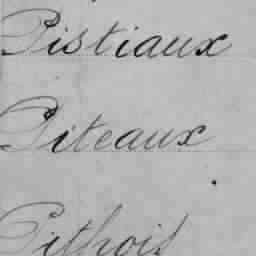 Pistiaux
Piteaux
Pithois